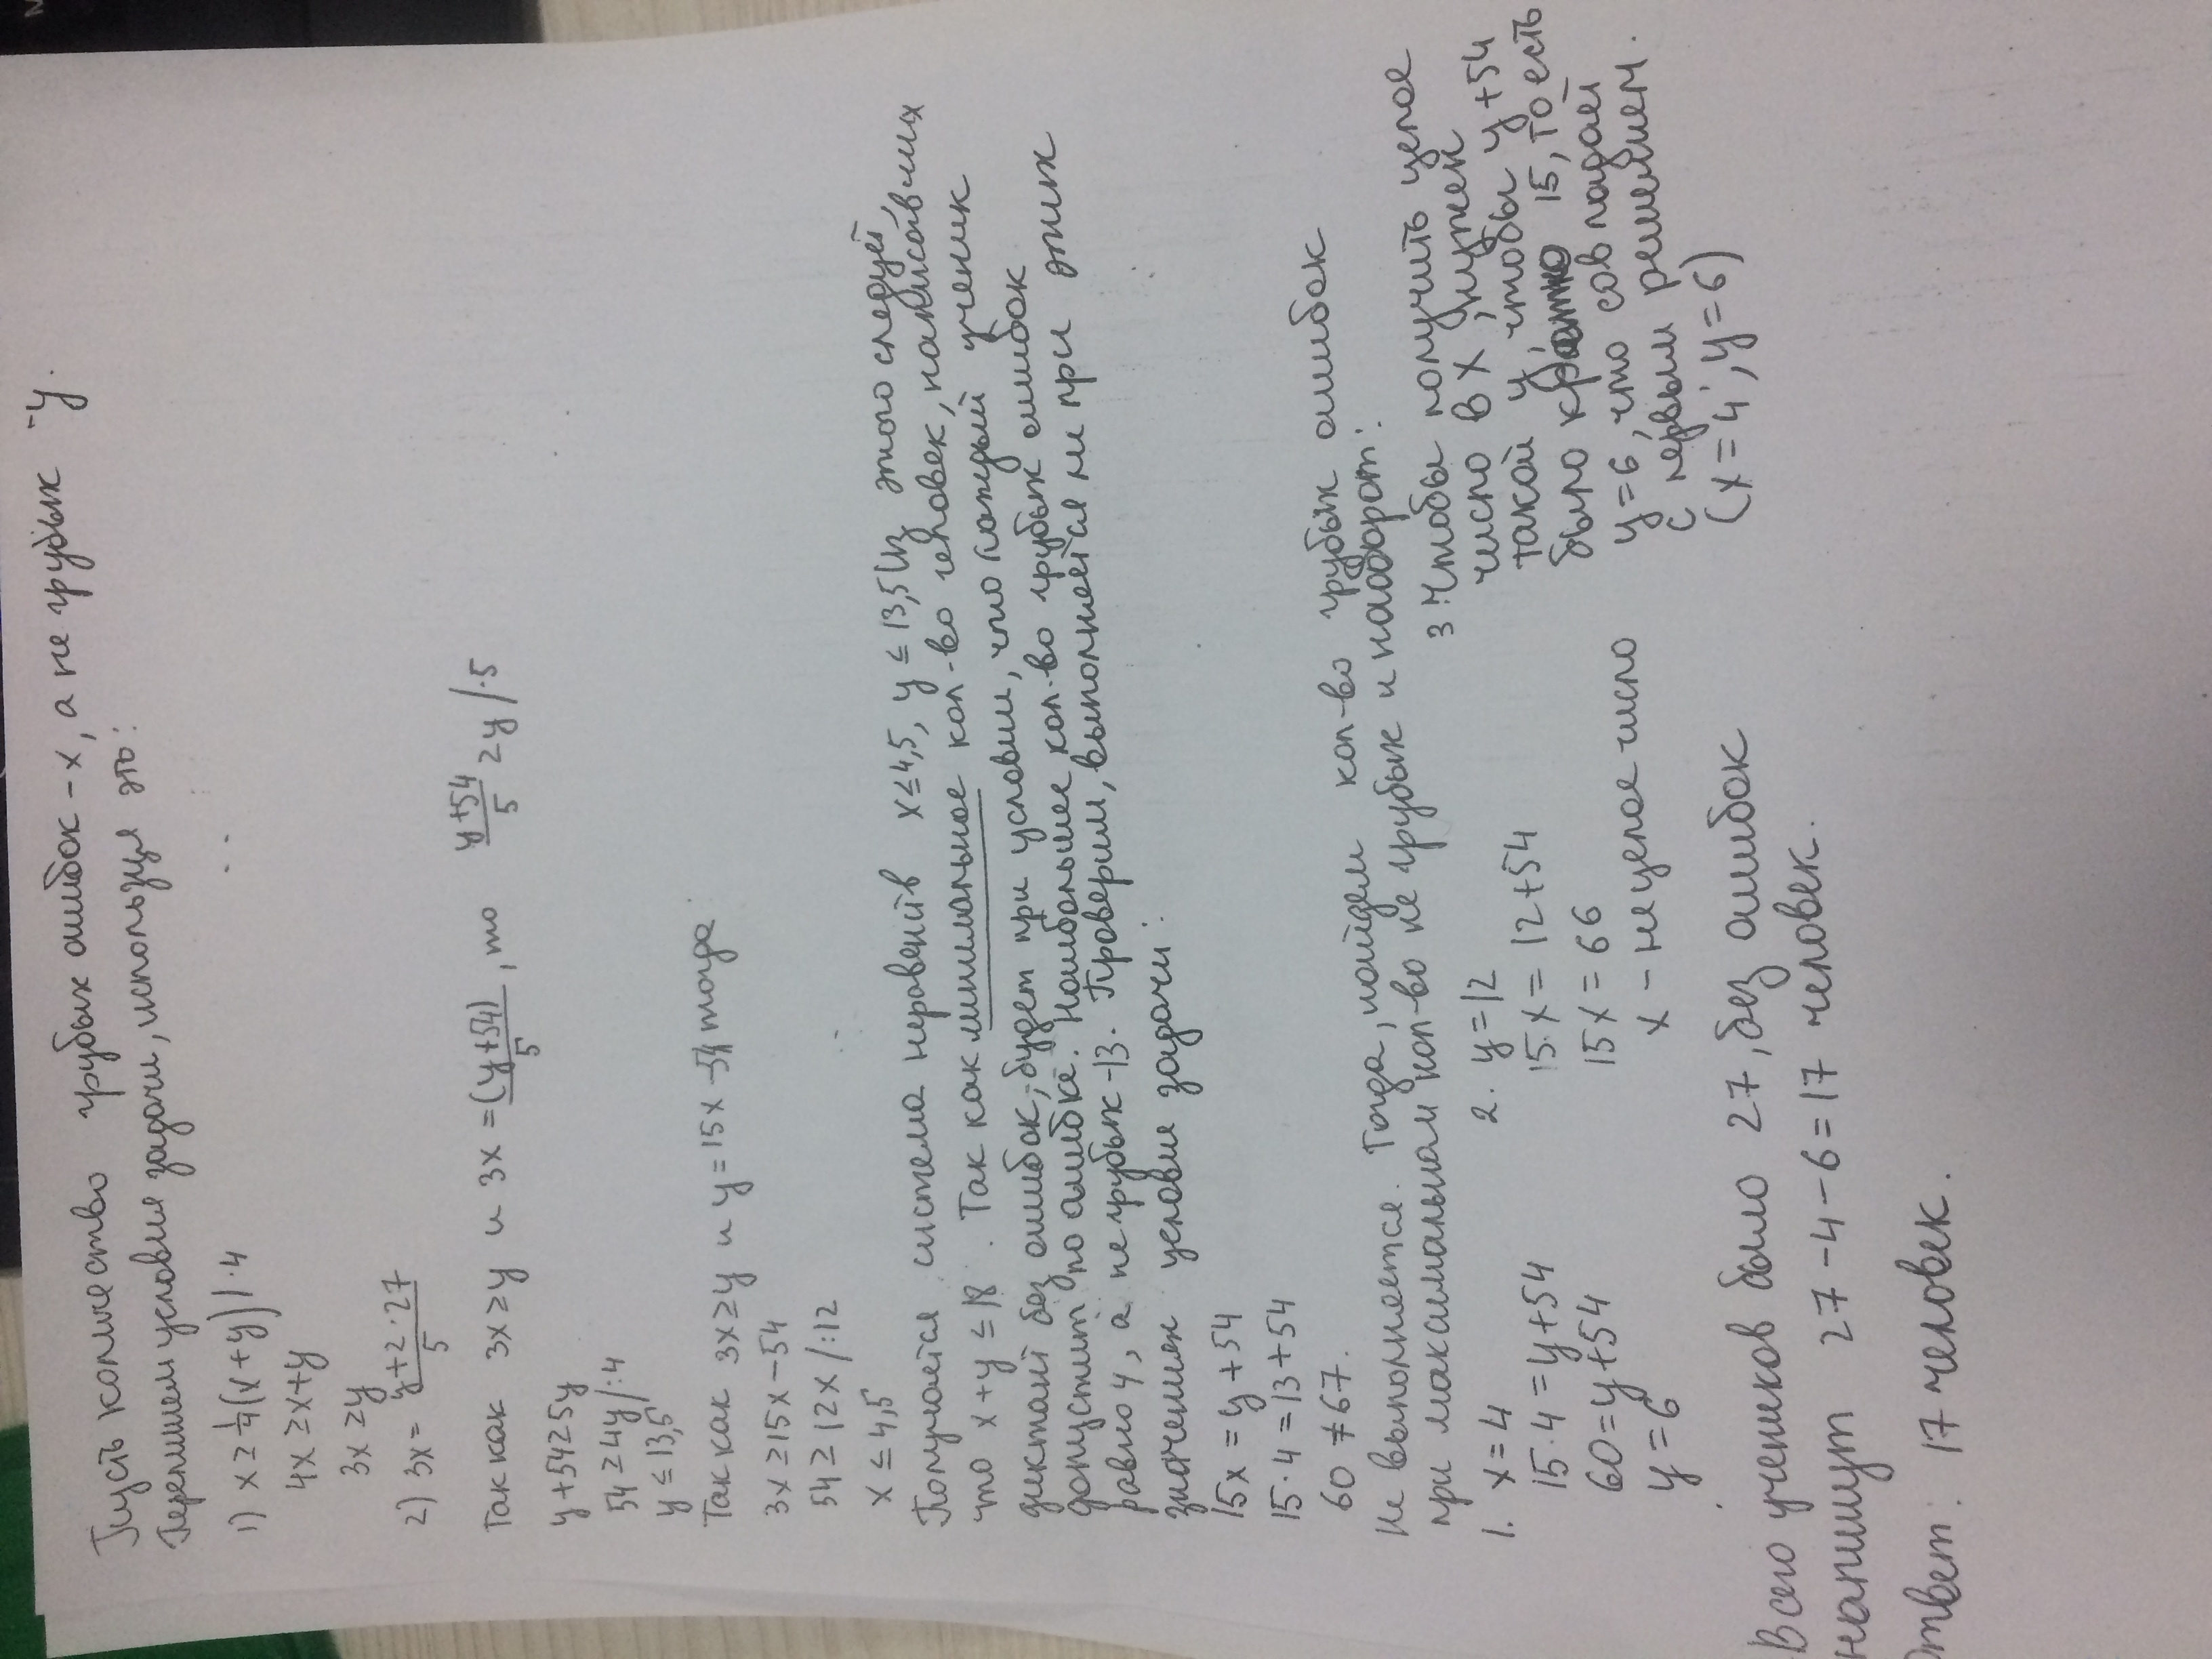 Пусть количество грубых ошибок - x, а не грубых - y.
Перепишем условия задачи, используя это:
1) x ≥ 1/4 (x+y) | ·4
4x ≥ x+y
3x ≥ y
2) 3x = (y+2·27)/5
Так как 3x ≥ y и 3x = (y+54)/5, то (y+54)/5 ≥ y /·5
y+54 ≥ 5y
54 ≥ 4y /:4
y ≤ 13,5
Так как 3x ≥ y и y = 15x - 54, тогда
3x ≥ 15x - 54
54 ≥ 12x /:12
x ≤ 4,5
Получается система неравенств x ≤ 4,5, y ≤ 13,5 Из этого следует,
что x+y ≤ 18. Так как минимальное кол-во человек, написавших
диктант без ошибок, будет при условии, что каждый ученик
допустит по ошибке. Наибольшее кол-во грубых ошибок
равно 4, а не грубых - 13. Проверим, выполняется ли при этих
значениях условие задачи:
15x = y + 54
15·4 = 13 + 54
60 ≠ 67.
Не выполняется. Тогда, найдем кол-во грубых ошибок
при максимальном кол-во не грубых и наоборот:
1. x = 4
15·4 = y + 54
60 = y + 54
y = 6
2. y = 12
15·x = 12 + 54
15x = 66
x - не целое число
3 Чтобы получить целое
число в x, нужен
такой y, чтобы y + 54
было кратно 15, то есть
y = 6, что совпадает
с первым решением.
(x = 4; y = 6)
Всего учеников было 27, без ошибок
напишут 27 - 4 - 6 = 17 человек.
Ответ: 17 человек.